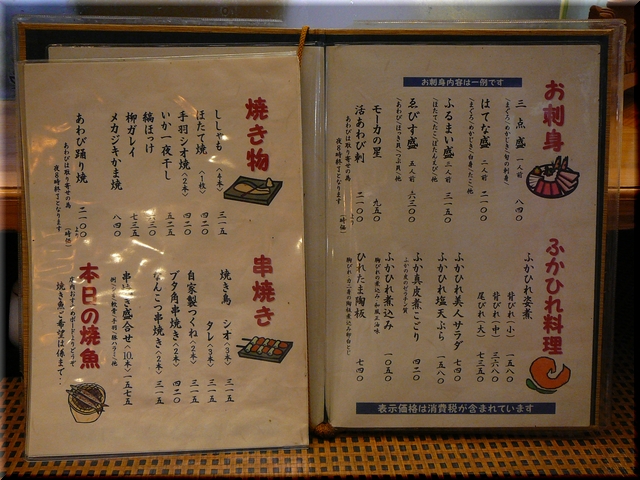 お刺身内容は一例です
お刺身
三点盛 一人前 八四〇
はてな盛 二人前 二一〇〇
ふるまい盛 三人前 三一五〇
ゑびす盛 五人前 六三〇〇
モーカの星 九五〇
活あわび刺 二一〇〇
あわびは取り寄せの為
夜長時終了となります
ふかひれ料理
ふかひれ姿煮
背びれ(小) 一五八〇
背びれ(中) 三六八〇
尾びれ(大) 七三五〇
ふかひれ美人サラダ 七四〇
ふかひれ塩天ぷら 一五八〇
ふか真皮煮こごり 四二〇
ふかひれ煮込み 一〇五〇
ひれたま陶板 七四〇
表示価格は消費税が含まれています
焼き物
ししゃも 〈4本〉 三一五
ほたて焼 〈1枚〉 四二〇
手羽シオ焼〈2本〉 四二〇
いか一夜干し 五二五
縞ほっけ 六三〇
柳ガレイ 七三五
メカジキかま焼 八四〇
あわび踊り焼 二一〇〇
あわびは取り寄せの為
串焼き
焼き鳥 シオ〈3本〉 三一五
タレ〈3本〉 三一五
自家製つくね〈2本〉 三一五
ブタ角串焼き〈2本〉 四二〇
なんこつ串焼き〈2本〉 三一五
串焼き盛合せ〈10本〉 一五七五
本日の焼魚
焼き魚ご希望は係まで‥